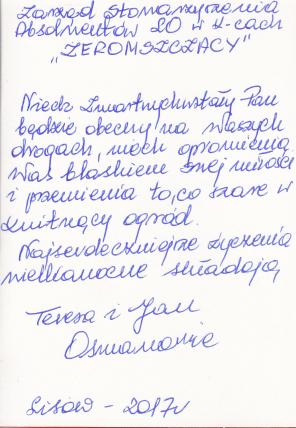 Zarząd Stowarzyszenia
Absolwentów LO w K-cach
„ŻEROMSZCZACY"
Niech Zmartwychwstały Pan
będzie obecny na Waszych
drogach, niech opromienia
Was blaskiem swej miłości
i przemienia to, co szare w
kwitnący ogród.
Najserdeczniejsze życzenia
wielkanocne składają
Teresa i Jan
Osmanowie
Lisów - 2017r